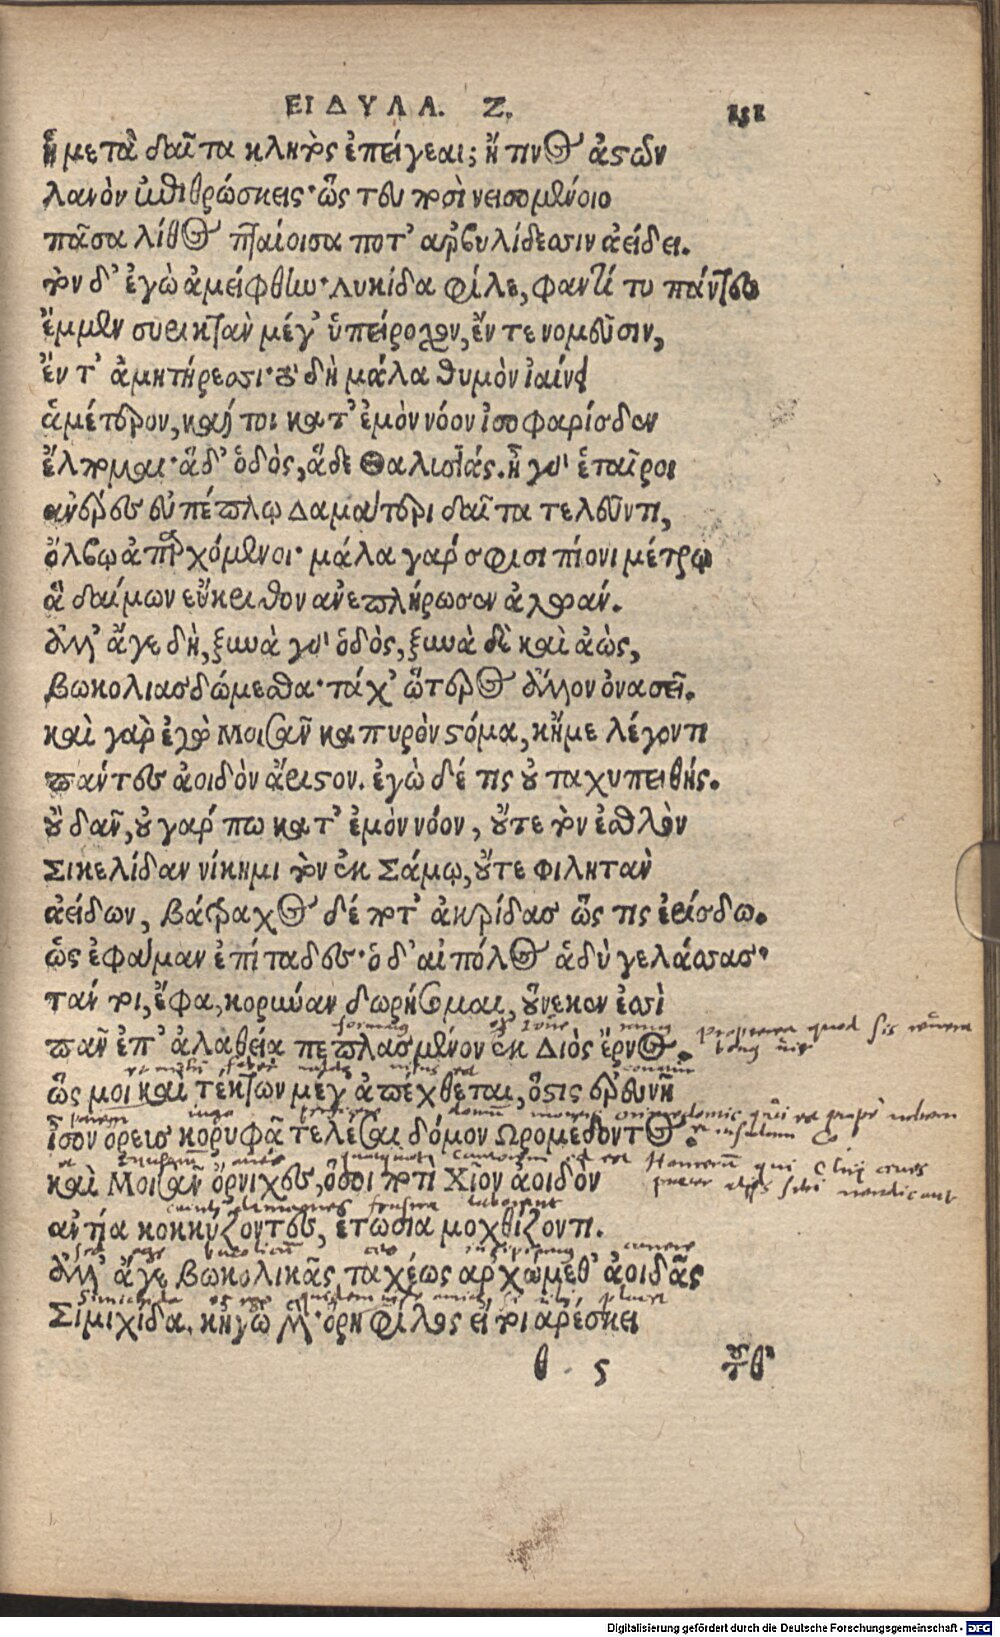 ΕΙΔΥΛΛ. Ζ.
151
ἢ μετὰ δαῖτα κλητὸς ἐπείγεαι; ἤ τινος ἀστῶν
λανὸν ἐπιθρώσκεις· ὥς τευ ποσὶ νεισομένοιο
πᾶσα λίθος πταίοισα ποτ' ἀρβυλίδεσσιν ἀείδει.
τὸν δ' ἐγὼ ἀμείφθην· Λυκίδα φίλε, φαντί τυ πάντες
ἔμμεν συρικτὰν μέγ' ὑπείροχον, ἔν τε νομεῦσιν,
ἔν τ' ἀμητήρεσσι· τὸ δὴ μάλα θυμὸν ἰαίνει
ἁμέτερον, καί τοι κατ' ἐμὸν νόον ἰσοφαρίσδεν
ἔλπομαι· ἁ δ' ὁδὸς, ἅδε Θαλισιάς. ἦ γὰρ ἑταῖροι
ἀνέρες εὐπέπλῳ Δαμάτερι δαῖτα τελεῦντι,
ὄλβῳ ἀπαρχόμενοι· μάλα γάρ σφισι πίονι μέτρῳ
ἁ δαίμων εὔκριθον ἀνεπλήρωσεν ἀλωάν.
ἀλλ' ἄγε δὴ, ξυνὰ γὰρ ὁδὸς, ξυνὰ δὲ καὶ ἀὼς,
βωκολιασδώμεσθα· τάχ' ὥτερος ἄλλον ὀνασεῖ.
καὶ γὰρ ἐγὼ Μοισᾶν καπυρὸν στόμα, κἤμε λέγοντι
πάντες ἀοιδὸν ἄριστον. ἐγὼ δέ τις οὐ ταχυπειθής.
οὐ δᾶν, οὐ γάρ πω κατ' ἐμὸν νόον, οὔτε τὸν ἐσθλὸν
Σικελίδαν νίκημι τὸν ἐκ Σάμῳ, οὔτε Φιλητᾶν
ἀείδων, βάτραχος δέ ποτ' ἀκρίδας ὥς τις ἐρίσδω.
ὣς ἐφάμαν ἐπίταδες· ὁ δ' αἰπόλος ἁδὺ γελάσσας·
τάν τοι, ἔφα, κορύναν δωρήσομαι, οὕνεκεν ἐσσὶ
propterea quod sis
πᾶν ἐπ' ἀλαθείᾳ πεπλασμένον ἐκ Διὸς ἔρνος.
ὥς μοι καὶ τέκτων μέγ' ἀπέχθεται, ὅστις ἐρευνῇ
ἶσον ὄρεος κορυφᾷ τελέσαι δόμον Ὠρομέδοντος.
καὶ Μοισᾶν ὄρνιχες, ὅσοι ποτὶ Χῖον ἀοιδὸν
frustra laborant
ἀντία κοκκύζοντες, ἐτώσια μοχθίζοντι.
ἀλλ' ἄγε βωκολικᾶς ταχέως ἀρχώμεθ' ἀοιδᾶς
Σιμιχίδα, κἠγὼ μὲν· ὄρη φίλος εἴ τοι ἀρέσκει
θ ς
τοῦθ'
Digitalisierung gefördert durch die Deutsche Forschungsgemeinschaft - DFG